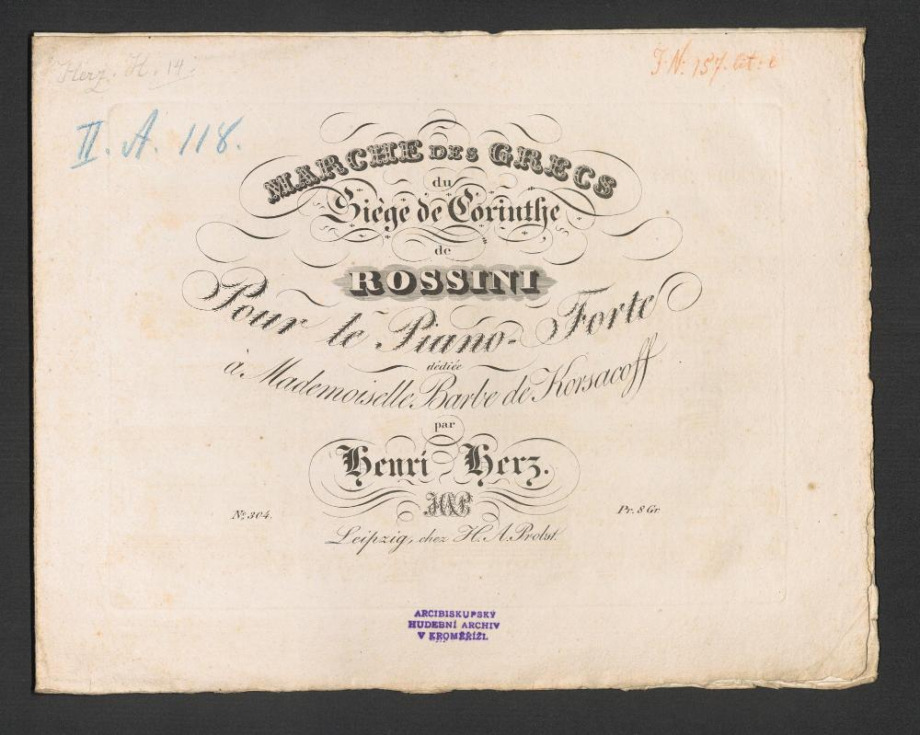 Herz. H. 14.
J. N: 157. lit: c
II. A. 118.
MARCHE DES GRECS
du
Siège de Corinthe
de
ROSSINI
Pour le Piano-Forte
dédiée
à Mademoiselle Barbe de Korsacoff
par
Henri Herz.
No. 304.
Pr. 8 Gr.
Leipzig, chez H. A. Probst.
ARCIBISKUPSKÝ
HUDEBNÍ ARCHIV
V KROMĚŘÍŽI.